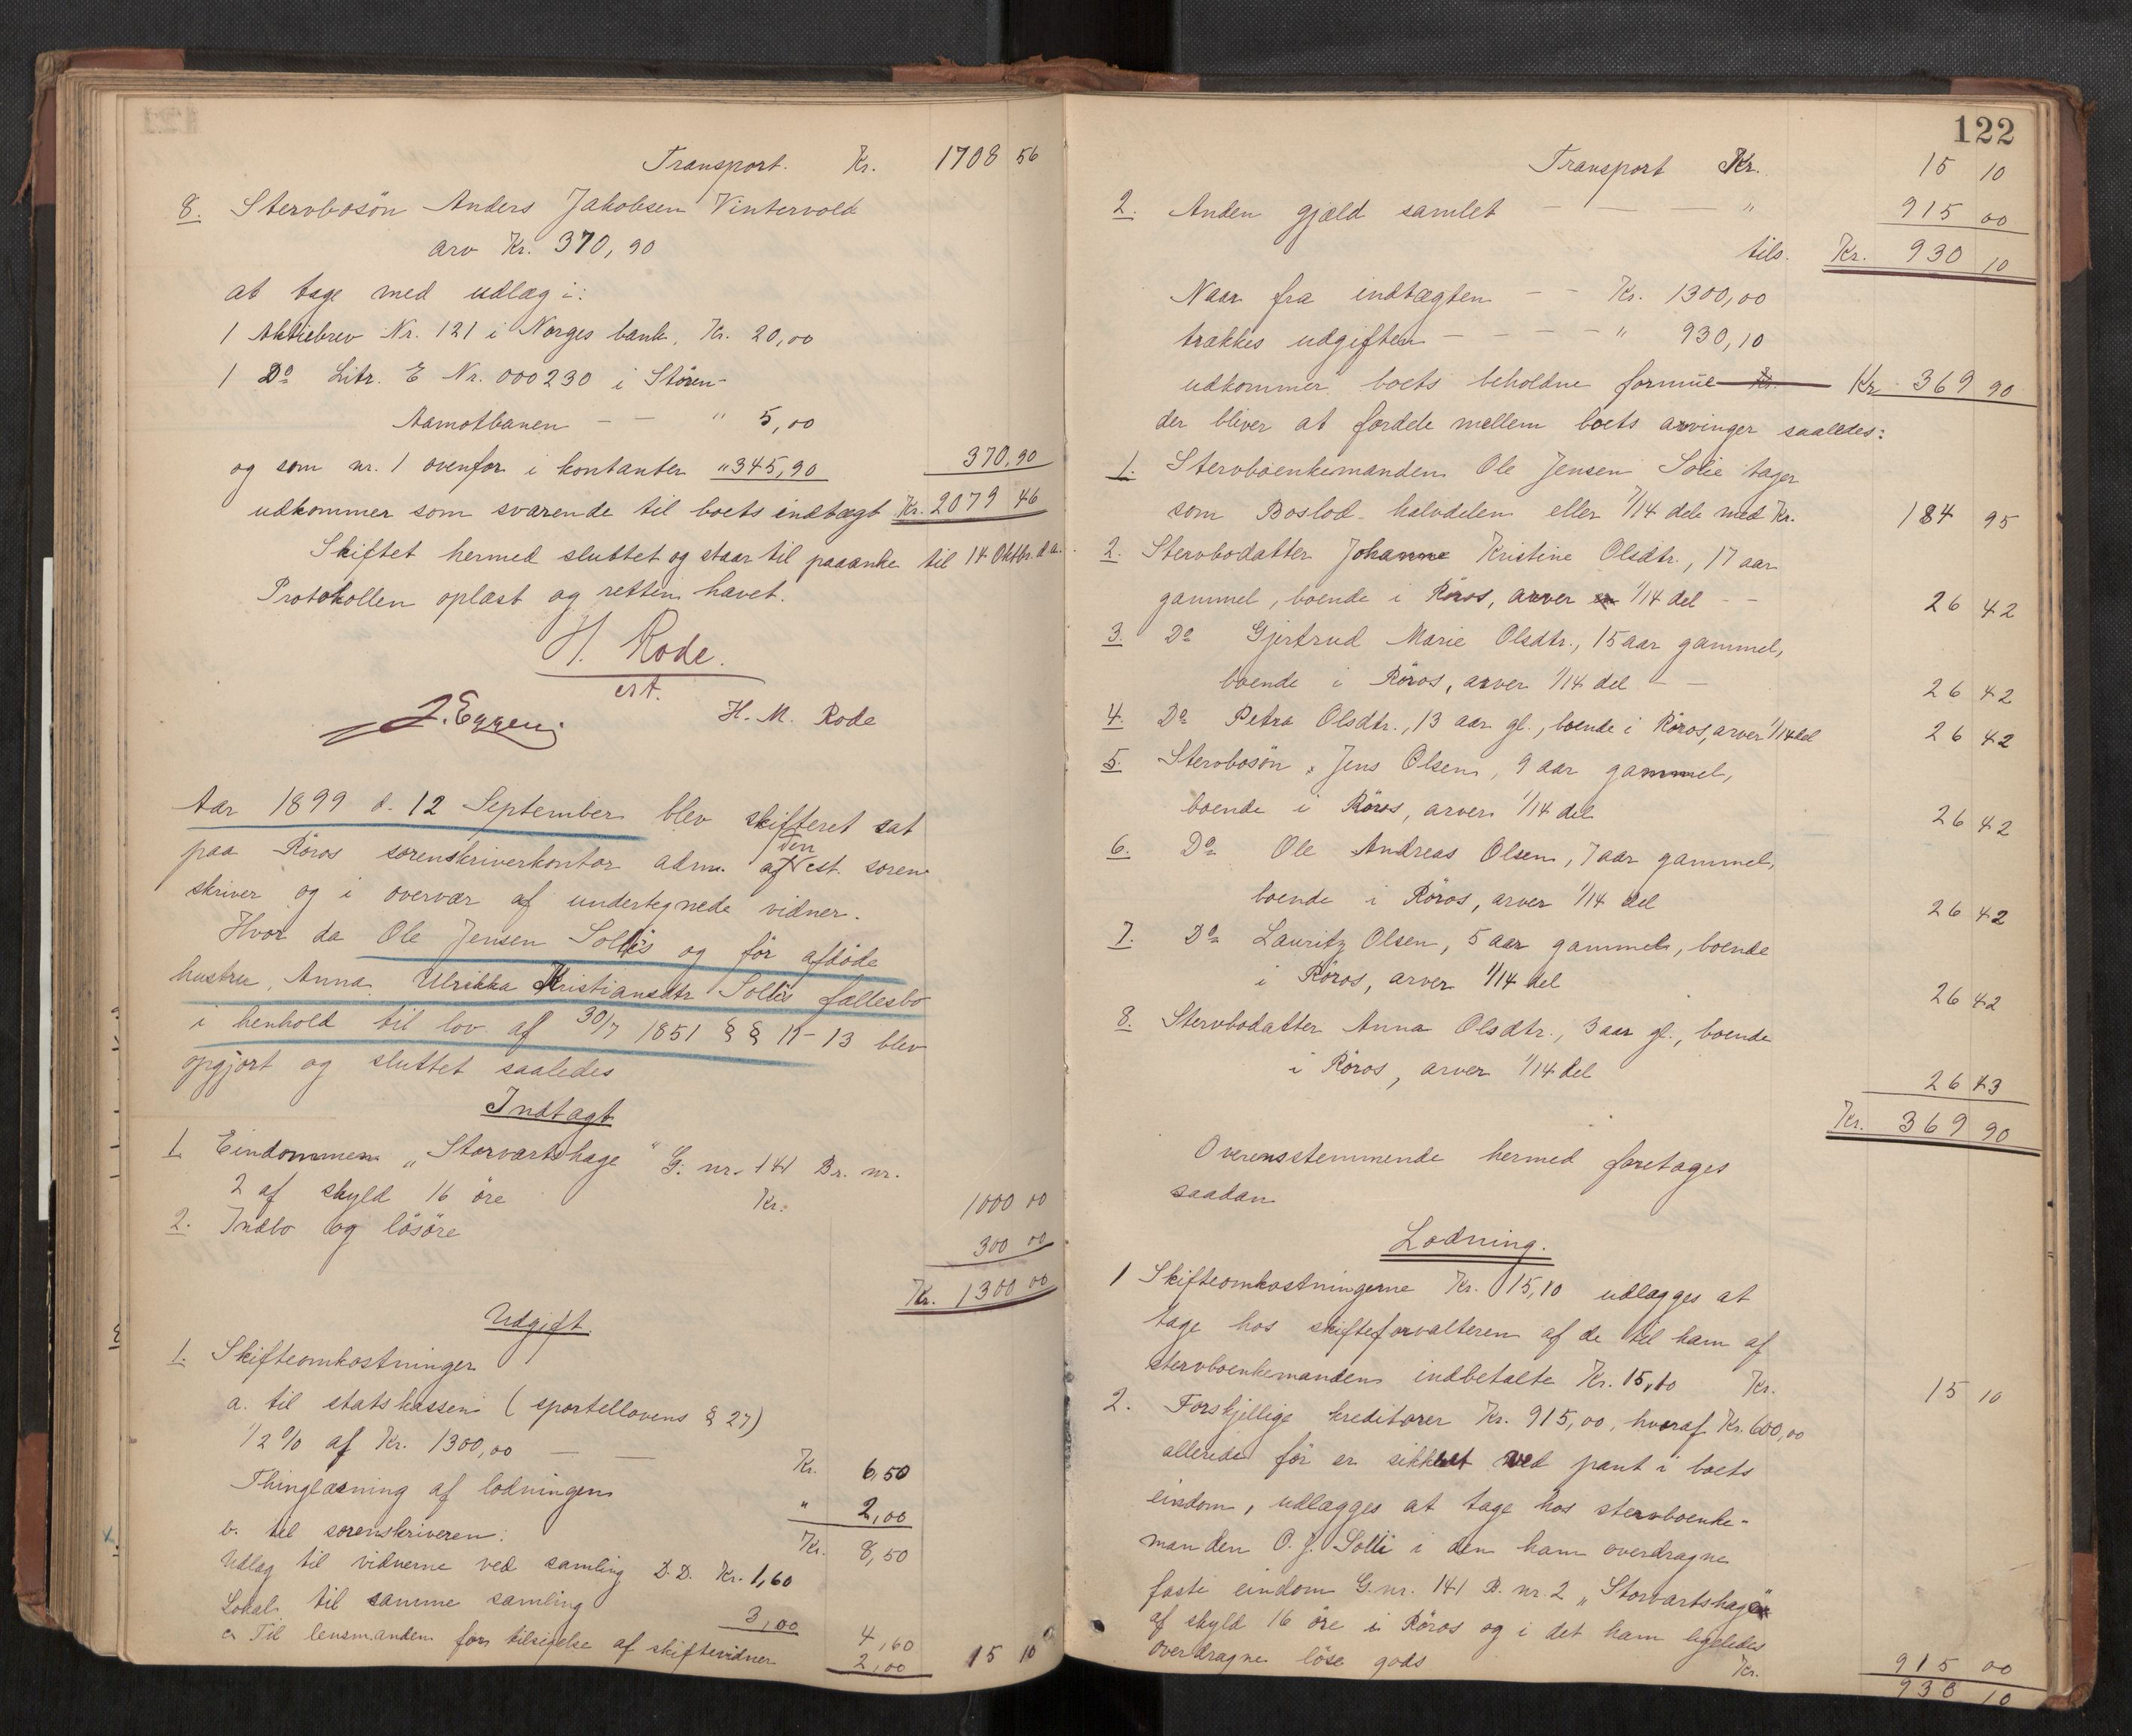 Transport. Kr. 1708 56
8. Stervbosön Anders Jakobsen Vintervold
arv Kr. 370,90
at tage med udlæg i:
1 Aktiebrev Nr. 121 i Norges bank, Kr. 20,00
1 Do Litr. E Nr. 000230 i Stören-
Aamotbanen — — " 5,00
og som nr. 1 ovenfor i kontanter " 345,90 370,90
udkommer som svarende til boets indtægt Kr. 2079 46
Skiftet hermed sluttet og staar til paaanke til 14 Oktbr. d. a.
Protokollen oplæst og retten hævet.
H. Rode.
cst.
J. Eggen H. M. Rode
Aar 1899 d. 12 September blev skifteret sat
paa Röros sorenskriverkontor adm. af den cst. soren-
skriver og i overvær af undertegnede vidner.
Hvor da Ole Jensen Sollis og før afdöde
hustru, Anna Ulrikka Kristiansdtr Sollis fællesbo
i henhold til lov af 30/7 1851 § § 11-13 blev
opgjort og sluttet saaledes
Indtægt
1. Eindommen „Storvartshage" G. nr. 141 Br. nr.
2 af skyld 16 öre Kr. 1000 00
2. Indbo og lösöre 300 00
Kr. 1300 00
Udgift.
1. Skifteomkostninger
a. til statskassen (sportellovens § 27)
1/2 % af Kr. 1300,00 — — Kr. 6,50
Thinglæsning af lodningen " 2,00
b. til sorenskriveren: Kr. 8,50
Udlæg til vidnerne ved samling D.D. Kr. 1,60
Lokal til samme samling 3,00 4,60
c. Til lensmanden for tilsigelse af skiftevidner 2,00 15 10
122
Transport Kr. 15 10
2. Anden gjæld samlet — — — " 915 00
tils. Kr. 930 10
Naar fra indtægten - - Kr. 1300,00
trækkes udgiften - - - - " 930,10
udkommer boets beholdne formue Kr. Kr 369 90
der bliver at fordele mellem boets arvinger saaledes:
1. Stervboenkemanden Ole Jensen Solie tager
som Boslod halvdelen eller 7/14 dele med Kr. 184 95
2. Stervbodatter Johanne Kristine Olsdtr., 17 aar
gammel, boende i Röros, arver en 1/14 del - - 26 42
3. Do Gjertrud Marie Olsdtr., 15 aar gammel,
boende i Röros, arver 1/14 del - - 26 42
4. Do Petra Olsdtr., 13 aar gl., boende i Röros, arver 1/14 del 26 42
5. Stervbosön, Jens Olsen, 9 aar gammel,
boende i Röros, arver 1/14 del 26 42
6. Do Ole Andreas Olsen, 7 aar gammel,
boende i Röros, arver 1/14 del 26 42
7. Do Lauritz Olsen, 5 aar gammel, boende
i Röros, arver 1/14 del 26 42
8. Stervbodatter Anna Olsdtr., 3 aar gl., boende
i Röros, arver 1/14 del 26 43
Kr. 369 90
Overensstemmende hermed foretages
saadan
Lodning.
1 Skifteomkostningerne Kr. 15,10 udlægges at
tage hos skifteforvalteren af de til ham af
stervboenkemanden indbetalte Kr. 15,10 Kr. 15 10
2. Forskjellige kreditorer Kr. 915,00, hvoraf Kr. 600,00
allerede för er sikkret ved pant i boets
eindom, udlægges at tage hos stervboenke-
manden O. J. Solli i den ham overdragne
faste eindom G. nr. 141 B. nr. 2 „Storvartshage"
af skyld 16 öre i Röros og i det ham ligeledes
overdragne löse gods Kr. 915 00
930 10